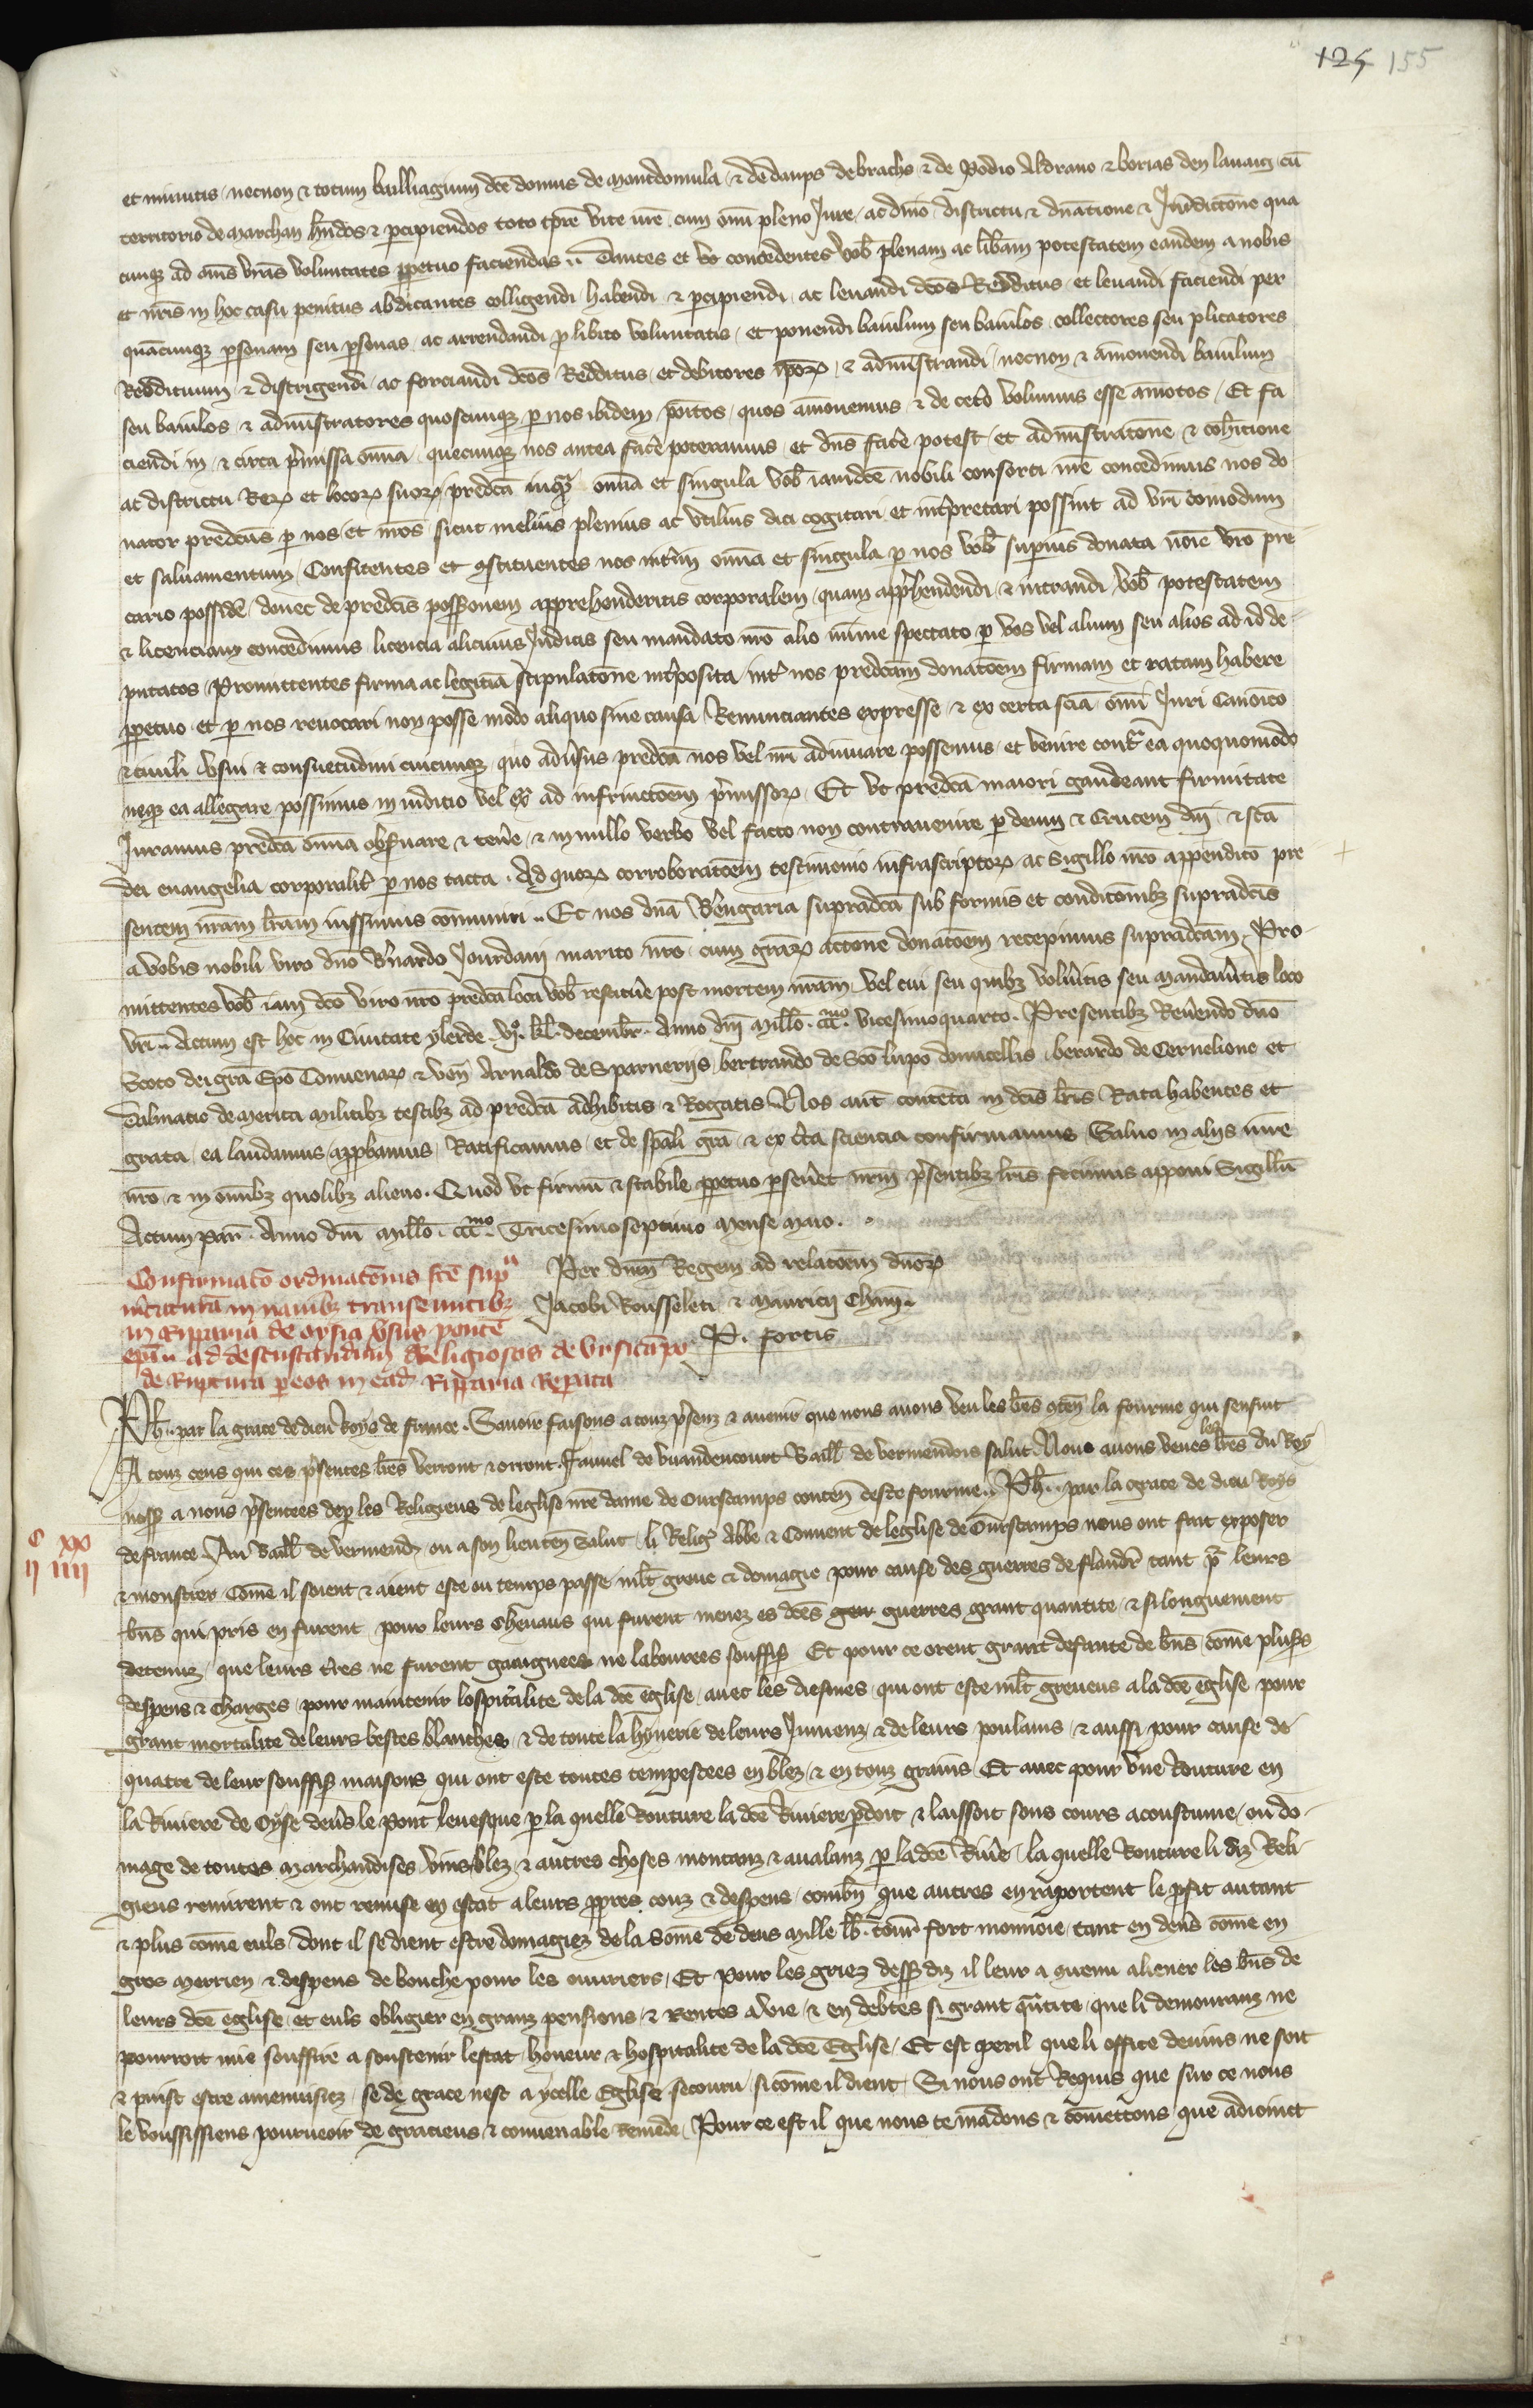 125 155
et minutis necnon & totum bailliagium dce domus de montdomula & dedanps de brachs & de Podio Aldrano & borias den lauaig cu
territorio de marchan hndos & percipiendos toto tpre vite vre cum omi pleno Iure ac dnio districtu & dnatione & Iuridictone qua
cunq ad oms vras voluntates perpetuo faciendas Dantes et concedentes vob plenam ac libam potestatem eandem a nobis
et nris in hoc casu penitus abdicantes colligendi habendi & percipiendi ac leuandi dcos Redditus et leuandi faciendi per
quacunq personam seu personas ac arrendandi pro libito voluntatis et ponendi baiulum seu baiulos collectores seu plicatores
Reddituum & distrigendi ac forciandi dcos Redditus et debitores ipor & administrandi necnon & amouendi baiulum
seu baiulos & administratores quoscunq per nos ibidem poitos quos amouemus & de cetero volumus esse amotos Et fa
ciendi in & circa premissa omia quecunq nos antea facere poteramus et dns facere potest et administratone & cohertione
ac districtu Rerum et locorum suorum predca inquam omia et singula vob iamdce nobili consorti nre concedimus nos do
nator predcus per nos et nros sicut melius plenius ac vtilius dici cogitari et interpretari possint ad vrm comodum
et saluamentum Confitentes et constituentes nos interim omia et singula per nos vob superius donata noie vro pre
cario possidere donec de predcis possessionem apprehenderitis corporalem quam apprehendendi & intrandi vob potestatem
& licenciam concedimus licencia alicuius Iudicis seu mandato nro alio minime spectato per vos vel alium seu alios ad id de
putatos Promittentes firma ac legitima stipulatone interposita inter nos predcam donatoem firmam et ratam habere
perpetuo et per nos reuocari non posse modo aliquo sine causa Renunciantes expresse & ex certa scia omi Iuri Canonico
& ciuili vsui & consuetudini cuicunq quo aduersus predca nos vel nri adiuuare possemus et venire contra ea quoquomodo
neq ea allegare possimus in iudicio vel extra ad infrinctoem premissor Et vt predca maiori gaudeant firmitate
Iuramus predca omia obseruare & tenere & in nullo verbo vel facto non contrauenire per deum & Crucem dni & sca
dei euangelia corporaliter per nos tacta Ad quorum corroboratoem testimonio infrascriptorum ac Sigillo nro appendito pre
sentem nram lram iussimus communiri Et nos dna Berengaria supradca sub formis et conditonibz supradcis
a vobis nobili viro dno Bernardo Iourdani marito nro cum grarum actone donatoem recepimus supradcam Pro
mittentes vob iam dco viro nro predca loca vob restituere post mortem nram vel cui seu quibz volueritis seu mandaueritis loco
vri Actum est hoc in Ciuitate ylerde vj. kl. decembr. Anno dni millo. ccc mo. vicesimoquarto. Presentibz Reuerendo dno
Scoto dei gra Epo Conuenar & ven Arnaldo de Sparnerijs bertrando de Sco lupo domicellis berardo de Cernelione et
Dalmatio de Metica militibz testibz ad predca adhibitis & Rogatis Nos aut contenta in dcis lris Rata habentes et
grata ea laudamus approbamus Ratificamus et de spali gra & ex certa sciencia confirmamus Saluo in alijs iure
nro & in omibz quolibz alieno. Quod vt firmum & stabile perpetuo perseueret nrm presentibz lris fecimus apponi Sigillu
Actum par. Anno dni millo. ccc mo. Tricesimoseptimo Mense Maio.
Confirmato ordinatonis fce super
mercatura in nauibz transeuntibz
in Riparia de oysia versus ponte
epi ad desdustandum Religiosos de vrsicapo
de Ruptura per eos in ead Riparia Reparata
Per dnm Regem ad relatoem dnor
Jacobi Rousseleti & Mauricij Cham.
P. fortis
Ph. par la grace de dieu Roys de france. Sauoir faisons a touz presenz & auenir que nous auons veu les lres conten la fourme qui sensuit
A touz ceus qui ces presentes lres verront & orront. Fauuel de vuandencourt Baill de vermendois salut. Nous auons veues les lres du Roy
nossr a nous presentees de par les Religieus de leglise nre dame de Ourscamps conten ceste fourme. Ph. par la grace de dieu Roys
de france. Au Baill de vermend ou a son lieuten Salut. li Relig Abbe & Couuent de leglise de Ourscamps nous ont fait exposer
c xx
ij iiij
& monstrer Come il soient & aient este ou temps passe mlt greue & domagie pour cause des guerres de flandr tant pour leurs
bns qui pris en furent pour leurs Cheuaus qui furent menez es dces guerres grant quantite & si longuement
detenuz que leurs tres ne furent gaaignees ne labourees souffis Et pour ce orent grant defaute de bns come pluss
despens & charges pour maintenir lospitalite de la dce eglise auec les diesmes qui ont este mlt greueus a la dce eglise pour
grant mortalite de leurs bestes blanches & de toute la hynerie de leurs Iumenz & de leurs poulains & aussi pour cause de
quatre de leur souffis maisons qui ont este toutes tempestees en blez & en touz grains Et auec pour vne Routure en
la Riuiere de Oyse deuers le pont leuesque per la quelle Routure la dce Riuiere perdoit & laissoit sons cours acoustume ou do
mage de toutes marchandises vins blez & autres choses montanz & aualanz per la dce Riuere la quelle Routure li diz Reli
gieus remirent & ont remise en estat a leurs propres couz & despens combn que autres en raportent le profit autant
& plus come euls dont il se dient estre domagiez de la Some de deus mille lb. tour fort monnoie tant en deners come en
gros merrien & despens de bouche pour les ouuriers Et pour les griez dessus diz il leur a quenu aliener les bns de
leurs dce eglise et euls obligier en granz pensions & rentes a vie & en debtes si grant quantite que li demouranz ne
pourrort mie souffire a soustenir lestat honeur & hospitalite de la dce Eglise Et est peril que li office deuins ne soit
& puist estre amenuisiez se de grace nest a ycelle Eglise secouru sicome il dient Si nous ont Requis que sur ce nous
le voussissiens pourueoir de gracieus & conuenable remede Pour ce est il que nous te mandons & comettons que adioinct